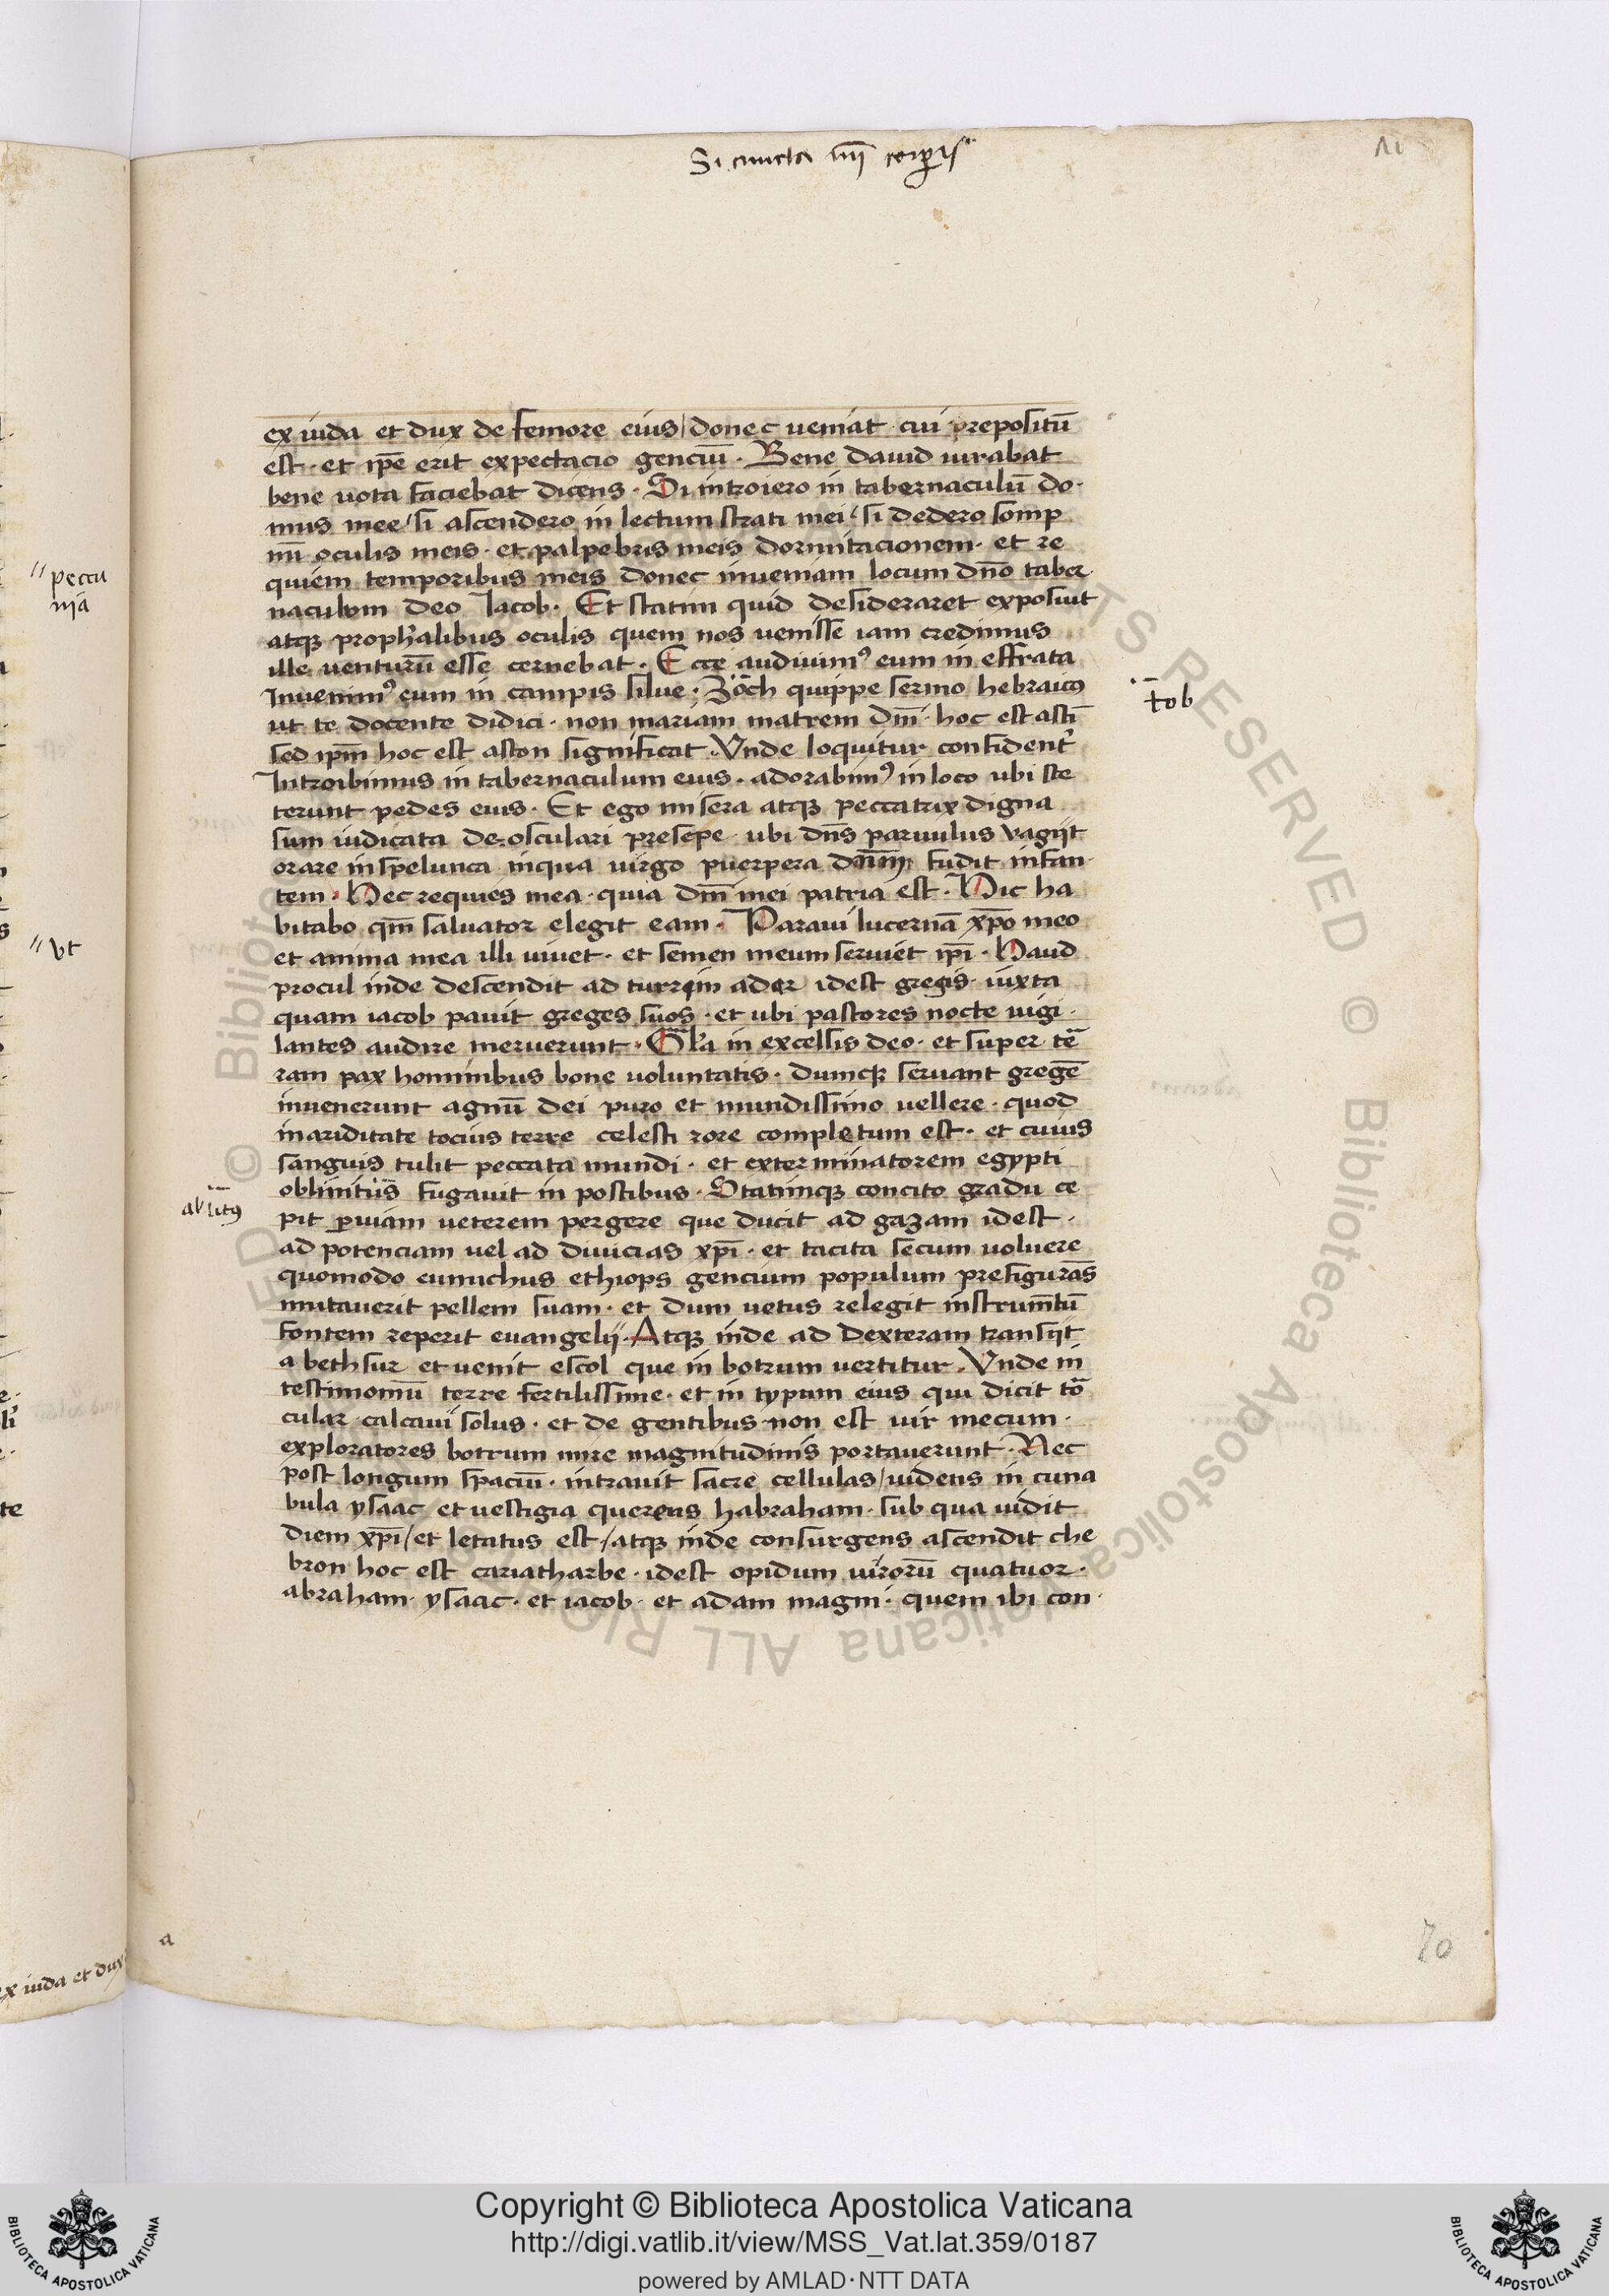 Si cuncta mei corporis
ex iuda et dux de femore eius / donec ueniat cui prepositū
est · et ip̄e erit expectacio genciū · Bene dauid iurabat
bene uota faciebat dicens · Si introiero in tabernaculū do·
mus mee / si ascendero in lectum strati mei / si dedero somp
nū oculis meis · et palpebris meis dormitacionem · et re
quiem temporibus meis donec inueniam locum dn̄o taber
naculum deo Iacob · Et statim quid desideraret exposuit
atqꝫ proph̄alibus oculis quem nos uenisse iam credimus
ille venturū esse cernebat · Ecce audiuimꝰ eum in effrata
Inuenimꝰ eum in campis silue · Zoch quippe sermo hebraicꝰ
ut te docente didici · non mariam matrem dn̄i · hoc est astī
sed ip̄m hoc est aston significat · Vnde loquitur confident̄
Introibimus in tabernaculum eius · adorabimꝰ in loco ubi ste
terunt pedes eius · Et ego misera atqꝫ peccatrix digna
sum iudicata de osculari presepe · ubi dn̄s paruulus vagijt
orare in spelunca inqua uirgo puerpera dn̄m fudit infan·
tem · Hec requies mea · quia dn̄i mei patria est · Hic ha
bitabo qm̄ saluator elegit eam · Paraui lucernā xp̄o meo
et anima mea illi uiuet · et semen meum seruiet ip̄i · Haud
procul inde descendit ad turrim ader idest gregis · iuxta
quam iacob pauit greges suos · et ubi pastores nocte uigi·
lantes audire meruerunt · Gl̄a in excelsis deo · et super tē
ram pax hominibus bone voluntatis · dumqꝫ seruant gregē
inuenerunt agnū dei puro et mundissimo uellere · quod
inariditate tocius terre celesti rore completum est · et cuius
sanguis tulit peccata mundi · et exterminatorem egypti
oblinitus fugauit in postibus · Statimqꝫ concito gradu ce
pit ꝑ uiam ueterem pergere que ducit ad gazam idest ·
ad potenciam uel ad diuicias xp̄i · et tacita secum uoluere
quomodo eunuchus ethiops gencium populum prefigurās
mutauerit pellem suam · et dum uetus relegit instrumn̄tū
fontem reperit euangelij · Atqꝫ inde ad dexteram transijt
a bethsur et uenit escol que in botrum vertitur · Vnde in
testimoniū terre fertilissime · et in typum eius qui dicit tō
cular calcaui solus · et de gentibus non est uir mecum ·
exploratores botrum mire magnitudinis portauerunt · Nec
post longum spaciū · intrauit sacre cellulas / uidens in cuna
bula ysaac et uestigia querens habraham · sub qua uidit
diem xp̄i / et letatus est / atqꝫ inde consurgens ascendit che
bron hoc est cariatharbe · idest opidum uirorū quatuor ·
abraham · ysaac · et iacob · et adam magni · quem ibi con·
peccu
nia
vt
tob
a
70
ex iuda et dux
Copyright © Biblioteca Apostolica Vaticana
http://digi.vatlib.it/view/MSS_Vat.lat.359/0187
powered by AMLAD·NTT DATA
BIBLIOTECA APOSTOLICA VATICANA
BIBLIOTECA APOSTOLICA VATICANA